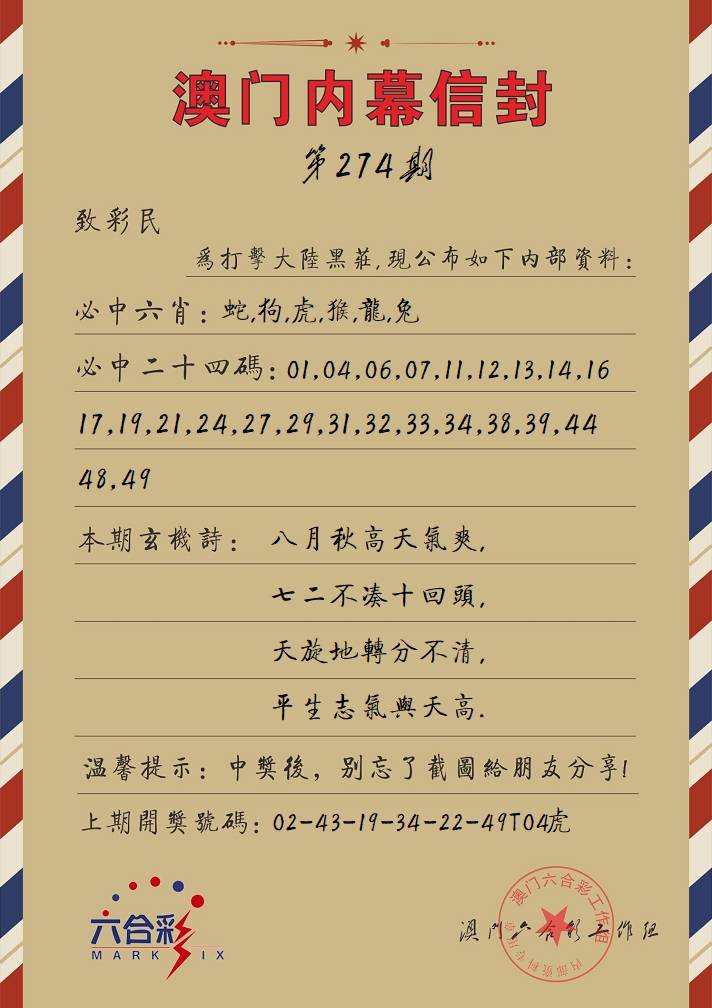 澳门内幕信封
第274期
致彩民
爲打擊大陸黑莊,現公布如下内部資料:
必中六肖:蛇,狗,虎,猴,龍,兔
必中二十四碼:01,04,06,07,11,12,13,14,16
17,19,21,24,27,29,31,32,33,34,38,39,44
48,49
本期玄機詩: 八月秋高天氣爽,
七二不凑十回頭,
天旋地轉分不清,
平生志氣與天高.
温馨提示:中獎後,别忘了截圖給朋友分享!
上期開獎號碼:02-43-19-34-22-49T04虎
六合彩
MARK SIX
澳门六合彩工作组
澳门六合彩工作组
内部资料专用章